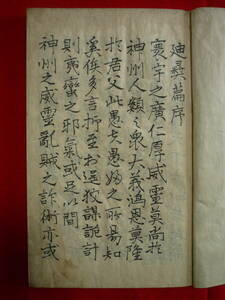 廸彜篇序
寰宇之廣仁厚威靈莫尚於
神州人類之衆大義鴻恩莫隆
於君父此愚夫愚婦之所易知
奚俟多言抑至於逞狡謀詭計
則夷蠻之邪氣或足以間
神州之威靈亂賊之詐術亦或